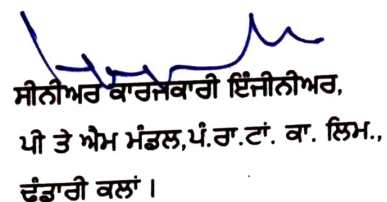 ਸੀਨੀਅਰ ਕਾਰਜਕਾਰੀ ਇੰਜੀਨੀਅਰ,
ਪੀ ਤੇ ਐਮ ਮੰਡਲ,ਪੰ.ਰਾ.ਟਾਂ. ਕਾ. ਲਿਮ.,
ਢੰਡਾਰੀ ਕਲਾਂ।